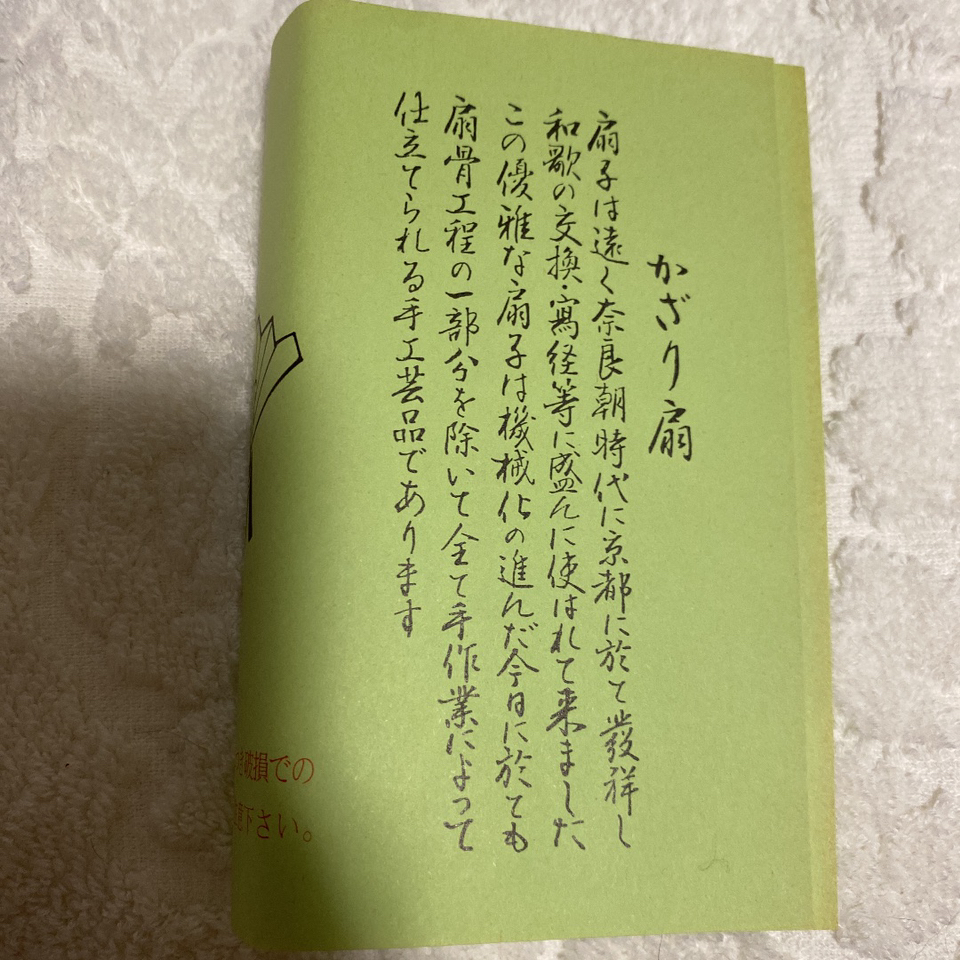 かざり扇
扇子は遠く奈良朝時代に京都に於て發祥し
和歌の交換・寫経等に盛んに使はれて来ました
この優雅な扇子は機械化の進んだ今日に於ても
扇骨工程の一部分を除いて全て手作業によって
仕立てられる手工芸品であります
破損での
下さい。